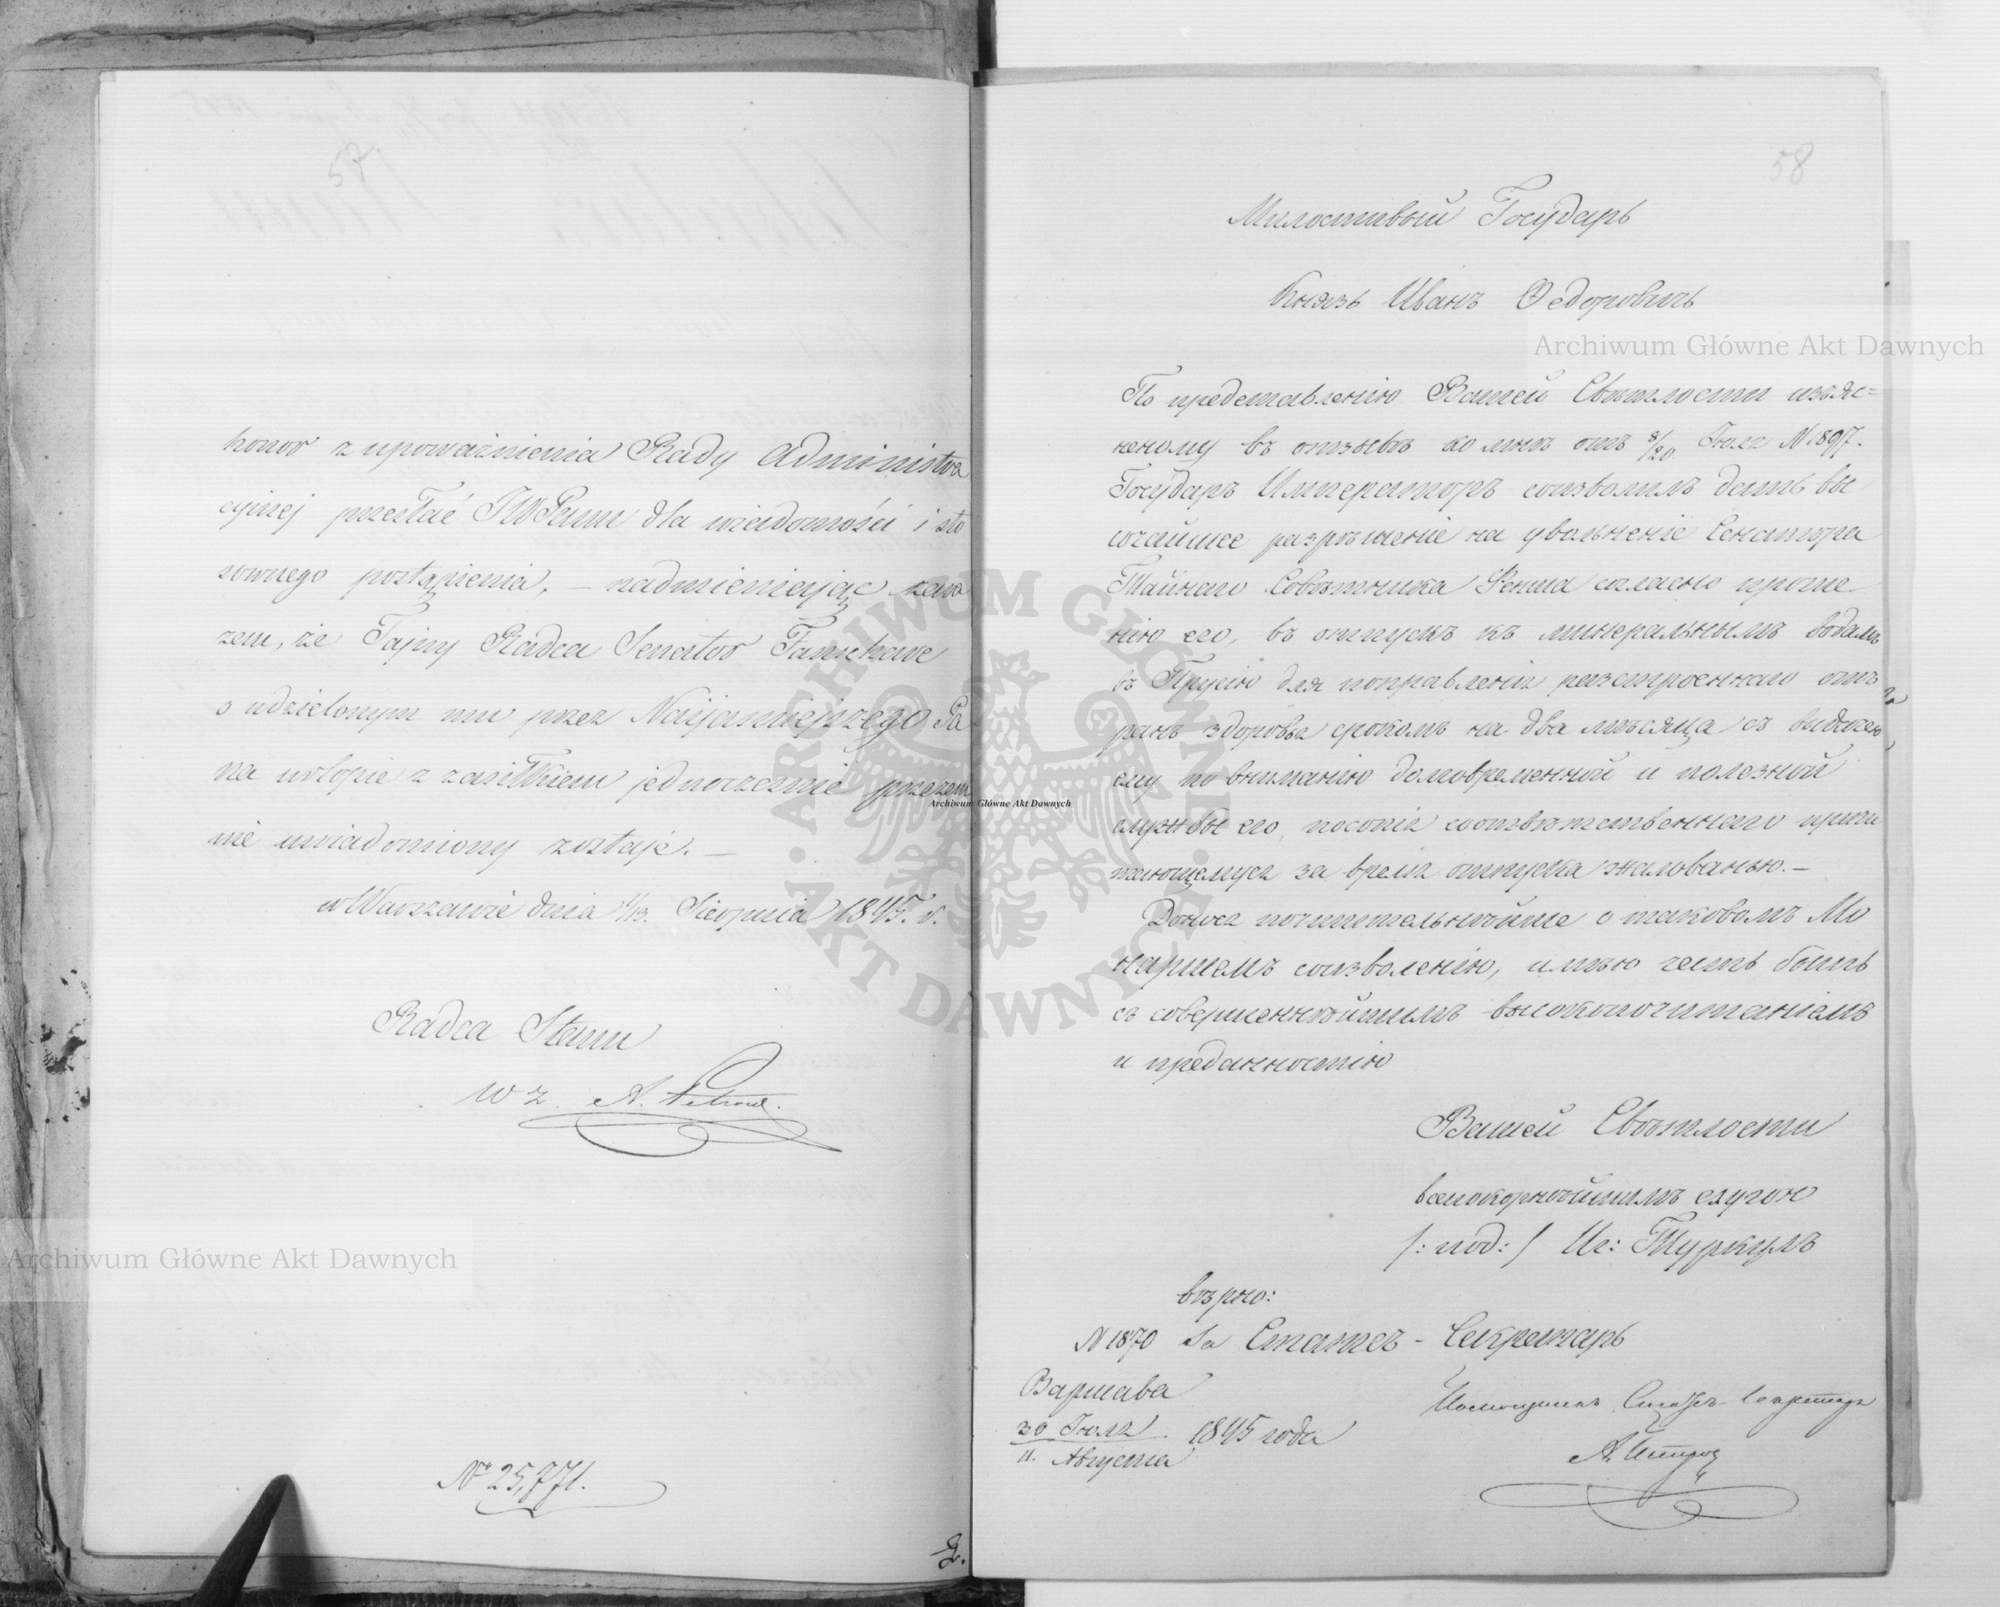 57.
honor z upoważnienia Rady Administra
cyjnej przesłać JWPanu dla wiadomości i sto
sownego postąpienia, – nadmieniając zara
zem, że Tajny Radca Senator Fanshawe
o udzielonym mu przez Najjaśniejszego Pa
na urlopie z zasiłkiem jednocześnie przezem
nie uwiadomiony zostaje. –
w Warszawie dnia 1/13. Sierpnia 1845. r.
Radca Stanu
w z.
Nº 25,771.
58
Милостивый Государь
Князь Иванъ Федоровичь
По представленію Вашей Свѣтлости изъяс=
неному въ отзывѣ ко мнѣ отъ 8/20 Іюля N 1897.
Государь Императоръ соизволилъ дать вы
сочайшее разрѣшеніе на увольненіе Сенатора
Тайнаго Совѣтника Фенша согласно проше
нію его, въ отпускъ къ минеральнымъ водамъ
въ Прусію для поправленія разстроеннаго отъ
ранъ здоровья срокомъ на два мѣсяца съ выдачею
ему по вниманію долговременной и полезной
службы его, пособія соотвѣтственнаго причи
тающемуся за время отпуска жалованью. –
Донося почтительнѣйше о таковомъ Мо
наршемъ соизволеніи, имѣю честь быть
съ совершеннѣйшимъ высокопочитаніемъ
и преданностію
Вашей Свѣтлости
всепокорнѣйшимъ слугою
/: под: / Иг: Туркулъ
вѣрно:
N 1870 За Статсъ - Секретарь
Варшава
30 Іюля
11. Августа 1845 года
Помощникъ Статсъ Секретаря
Archiwum Główne Akt Dawnych
Archiwum Główne Akt Dawnych
Archiwum Główne Akt Dawnych
ARCHIWUM GŁÓWNE AKT DAWNYCH